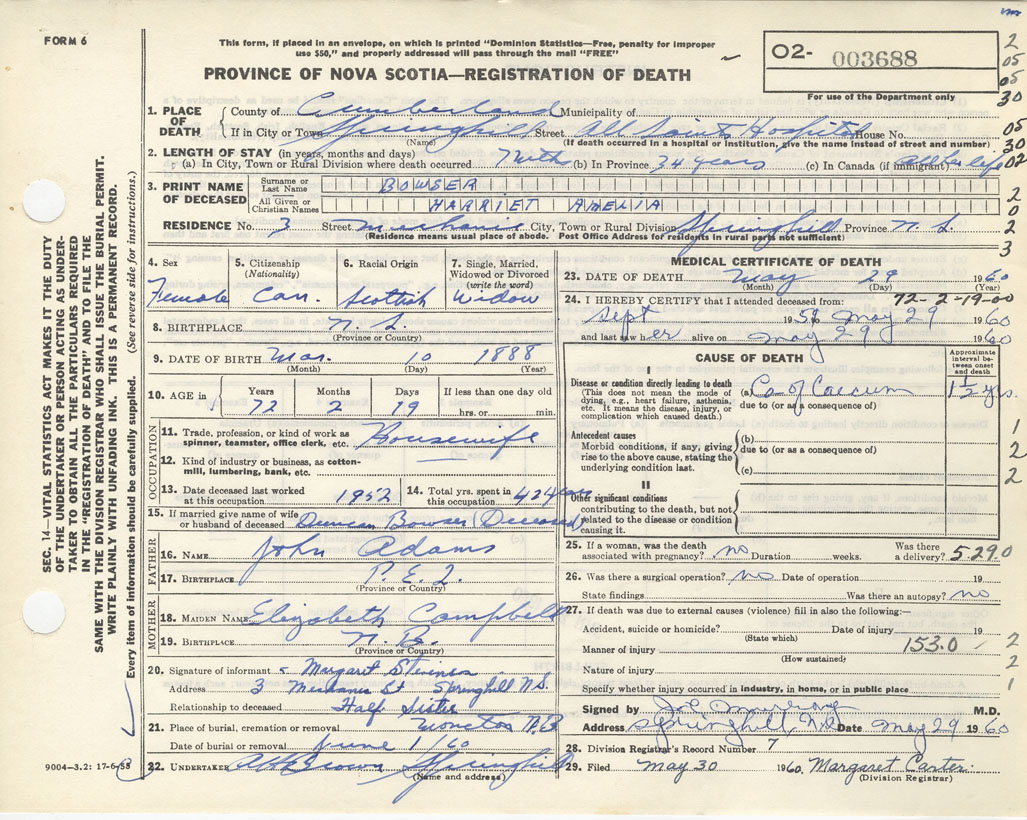 FORM 6
This form, if placed in an envelope, on which is printed "Dominion Statistics—Free, penalty for improper
use $50," and properly addressed will pass through the mail "FREE"
PROVINCE OF NOVA SCOTIA—REGISTRATION OF DEATH
02- 003688
For use of the Department only
1. PLACE OF DEATH. County of Cumberland Municipality of
If in City or Town Springhill Street All Saints Hospital House No.
(Name) (If death occurred in a hospital or institution, give the name instead of street and number)
2. LENGTH OF STAY (in years, months and days)
(a) In City, Town or Rural Division where death occurred 7 mths (b) In Province 34 years (c) In Canada (if immigrant) all her life
3. PRINT NAME OF DECEASED Surname or Last Name BOWSER
All Given or Christian Names HARRIET AMELIA
RESIDENCE No. 3 Street Mechanic City, Town or Rural Division Springhill Province N. S.
(Residence means usual place of abode. Post Office Address for residents in rural parts not sufficient)
4. Sex Female
5. Citizenship (Nationality) Can.
6. Racial Origin Scottish
7. Single, Married, Widowed or Divorced (write the word) Widow
8. BIRTHPLACE N. S.
(Province or Country)
9. DATE OF BIRTH Mar. 10 1888
(Month) (Day) (Year)
10. AGE in Years 72 Months 2 Days 19 If less than one day hrs. or min.
OCCUPATION
11. Trade, profession, or kind of work as spinner, teamster, office clerk, etc. Housewife
12. Kind of industry or business, as cotton-mill, lumbering, bank, etc.
13. Date deceased last worked at this occupation 1952
14. Total yrs. spent in this occupation 42 years
15. If married give name of wife or husband of deceased Duncan Bowser (Deceased)
FATHER
16. NAME John Adams
17. BIRTHPLACE P. E. I.
(Province or Country)
MOTHER
18. MAIDEN NAME Elizabeth Campbell
19. BIRTHPLACE N. B.
(Province or Country)
20. Signature of informant Margaret Stevens
Address 3 Mechanic St Springhill N.S.
Relationship to deceased Half Sister
21. Place of burial, cremation or removal Moncton N.B
Date of burial or removal June 1/60
22. UNDERTAKER Brown Springhill
(Name and address)
MEDICAL CERTIFICATE OF DEATH
23. DATE OF DEATH May 29 1960
(Month) (Day) (Year)
24. I HEREBY CERTIFY that I attended deceased from: 72-2-19-00
Sept 1959 to May 29 1960
and last saw her alive on May 29 1960
CAUSE OF DEATH
Approximate interval between onset and death
I
Disease or condition directly leading to death (a) Ca of Caecum 1½ yrs.
(This does not mean the mode of dying, e.g., heart failure, asthenia, etc. It means the disease, injury, or complication which caused death.)
due to (or as a consequence of)
Antecedent causes
Morbid conditions, if any, giving rise to the above cause, stating the underlying condition last.
(b)
due to (or as a consequence of)
(c)
II
Other significant conditions
contributing to the death, but not related to the disease or condition causing it.
25. If a woman, was the death associated with pregnancy? no Duration weeks. Was there a delivery? 5.29.0
26. Was there a surgical operation? no Date of operation 19
State findings Was there an autopsy? no
27. If death was due to external causes (violence) fill in also the following:—
Accident, suicide or homicide? Date of injury 19
(State which)
Manner of injury 153.0
(How sustained)
Nature of injury
Specify whether injury occurred in industry, in home, or in public place
Signed by M.D.
Address Springhill, N.S. Date May 29 1960
28. Division Registrar's Record Number 7
29. Filed May 30 1960 Margaret Carter
(Division Registrar)
2
05
05
30
05
30
02
2
0
2
3
1
2
2
2
2
1
SEC. 14—VITAL STATISTICS ACT MAKES IT THE DUTY
OF THE UNDERTAKER OR PERSON ACTING AS UNDER-
TAKER TO OBTAIN ALL THE PARTICULARS REQUIRED
IN THE "REGISTRATION OF DEATH" AND TO FILE THE
SAME WITH THE DIVISION REGISTRAR WHO SHALL ISSUE THE BURIAL PERMIT.
WRITE PLAINLY WITH UNFADING INK. THIS IS A PERMANENT RECORD.
Every item of information should be carefully supplied. (See reverse side for instructions.)
9004-3.2: 17-6-58